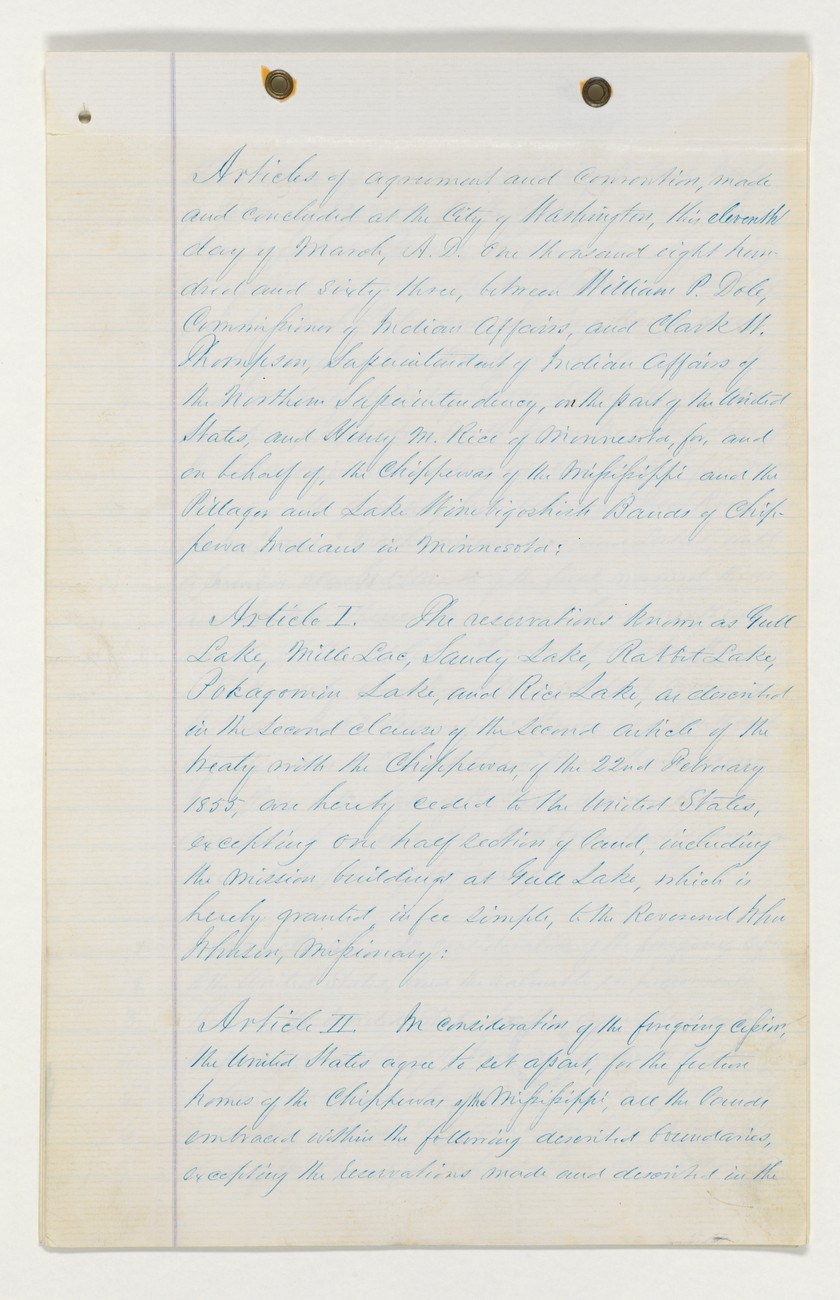 Articles of agreement and Convention, made
and concluded at the City of Washington, this eleventh
day of March, A.D. One thousand eight hun-
dred and sixty three, between William P. Dole,
Commissioner of Indian Affairs, and Clark W.
Thompson, Superintendent of Indian Affairs of
the Northern Superintendency, on the part of the United
States, and Henry M. Rice of Minnesota, for, and
on behalf of, the Chippewas of the Mississippi and the
Pillager and Lake Winebigoshish Bands of Chip-
pewa Indians in Minnesota;
Article I. The reservations known as Gull
Lake, Mille Lac, Sandy Lake, Rabbit Lake,
Pokagomin Lake, and Rice Lake, as described
in the second clause of the second article of the
treaty with the Chippewas, of the 22nd February
1855, are hereby ceded to the United States,
excepting one half section of land, including
the mission buildings at Gull Lake, which is
hereby granted, in fee simple, to the Reverend John
Johnson, Missionary:
Article II. In consideration of the foregoing cession,
the United States agree to set apart, for the future
homes of the Chippewas of the Mississippi, all the lands
embraced within the following described boundaries,
excepting the reservations made and described in the